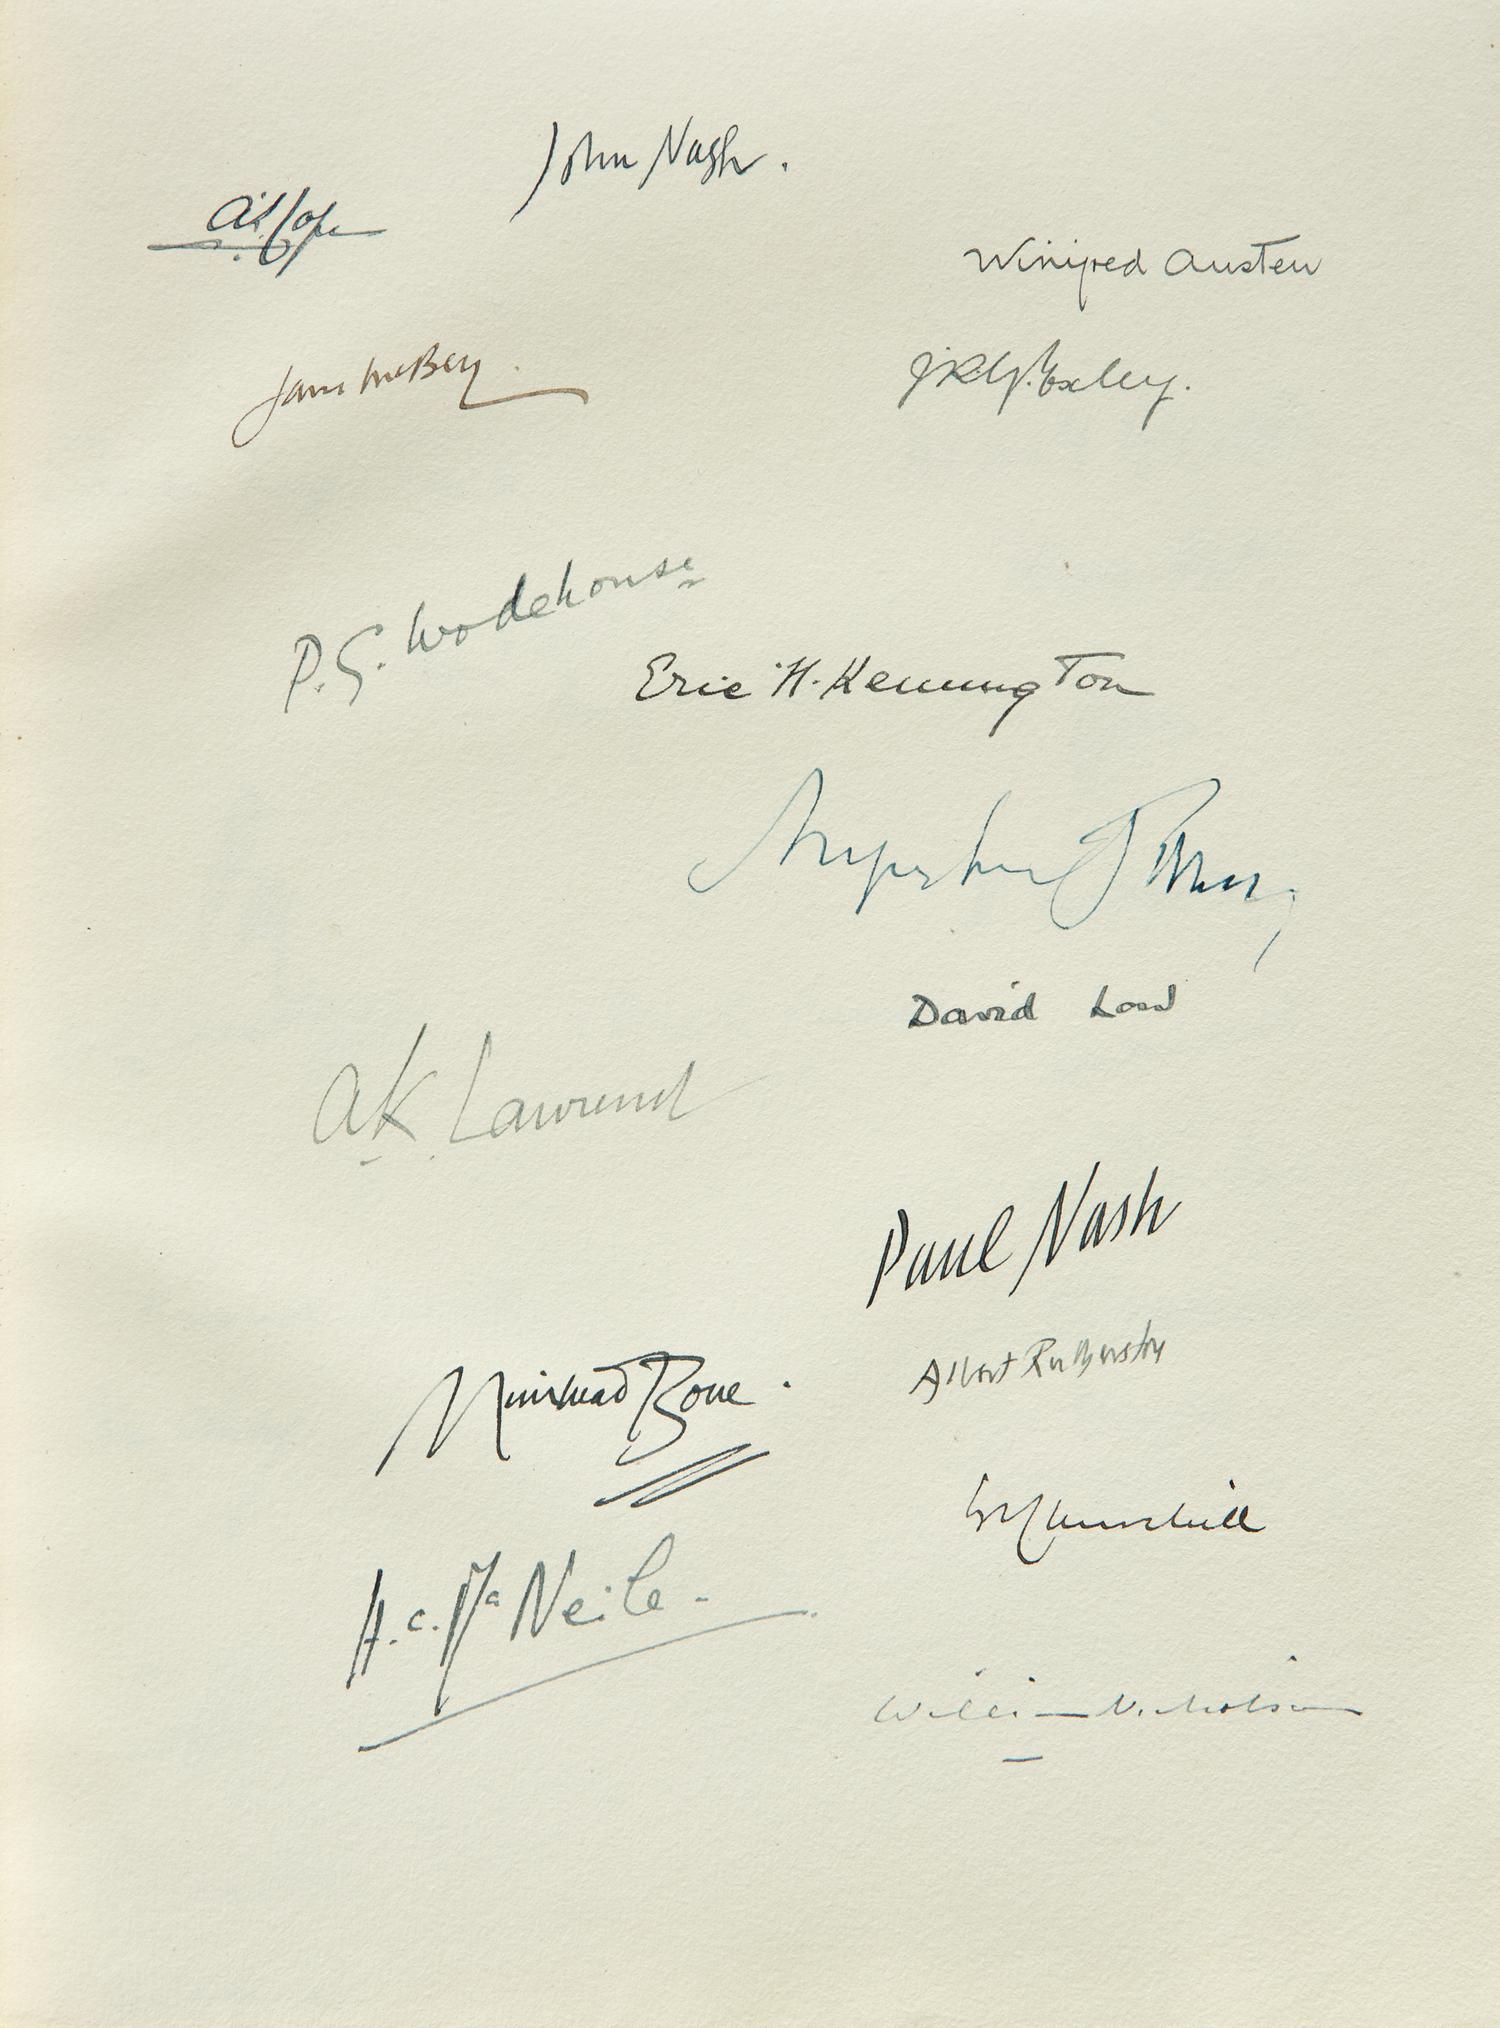 John Nash.
A.S. Cope
Winifred Austen
James McBey.
J.R.G. Exley.
P.G. Wodehouse
Eric H. Kennington
Augustus John
David Low
A.K. Lawrence
Paul Nash
Albert Rutherston
Muirhead Bone.
H.C. McNeile.
William Nicholson